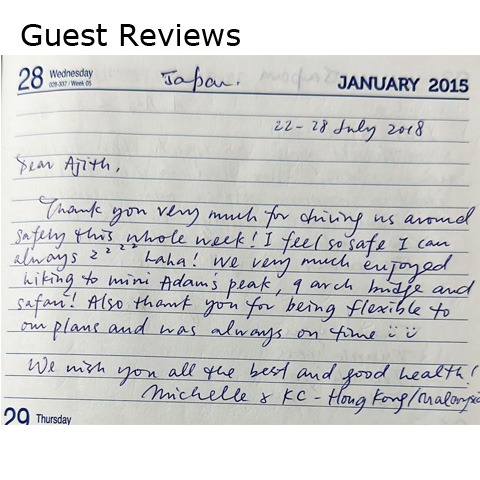 Guest Reviews
28 Wednesday Japan. JANUARY 2015
028-337 / Week 05
22-28 July 2018
Dear Ajith,
Thank you very much for driving us around
safely this whole week! I feel so safe I can
always z z z z haha! We very much enjoyed
hiking to mini Adam's peak, 9 arch bridge and
safari! Also thank you for being flexible to
our plans and was always on time
We wish you all the best and good health!
Michelle & KC - Hong Kong/Malaysia
29 Thursday